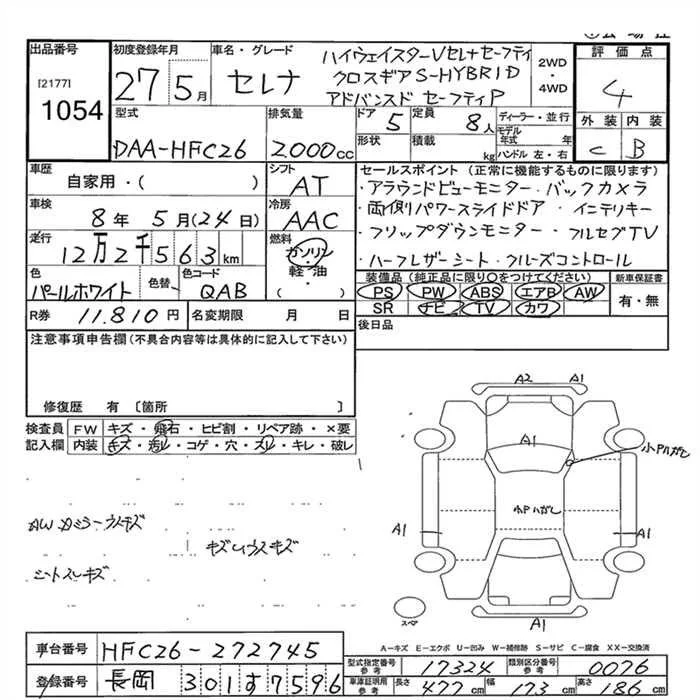 出品番号
[2177]
1054
初度登録年月
27年5月
車名・グレード
セレナ
ハイウェイスターVセレナセーフティ
クロスギアS-HYBRID
アドバンスド セーフティP
2WD
・
4WD
評価点
4
外装 内装
C B
型式
DAA-HFC26
排気量
2000cc
ドア 5
定員 8人
形状
積載 kg
ディーラー・並行
モデル年式 年
ハンドル 左・右
車歴
自家用・( )
シフト
AT
車検
8年5月(24日)
冷房
AAC
走行
12万2千563km
燃料
ガソリン
・
軽油
・
( )
色
パールホワイト
色替
色コード
QAB
R券 11,810円
名変期限 月 日
セールスポイント(正常に機能するものに限ります)
・アラウンドビューモニター・バックカメラ
・両側パワースライドドア・インテリキー
・フリップダウンモニター・フルセグTV
・ハーフレザーシート・クルーズコントロール
装備品(純正品に限り○をつけてください)
PS PW ABS エアB AW
SR ナビ TV カワ
新車保証書
有・無
後日品
注意事項申告欄(不具合内容等は具体的に記入して下さい)
修復歴 有 〔箇所 〕
検査員
記入欄
FW キズ・飛石・ヒビ割・リペア跡・×要
内装 キズ・汚レ・コゲ・穴・スレ・キレ・破レ
AW ガミラーウスキズ
キズUウスキズ
シートスレキズ
A2 A1
A1
小Pハガし
小Pハガし
A1
A1
A1
スペア
A−キズ E−エクボ U−凹み W−補修跡 S−サビ C−腐食 XX−交換済
車台番号
HFC26-272745
登録番号
長岡 301す7596
型式指定番号
参考
17324
類別区分番号
参考
0076
車庫証明用
参考
長さ 477cm
幅 173cm
高さ 186cm